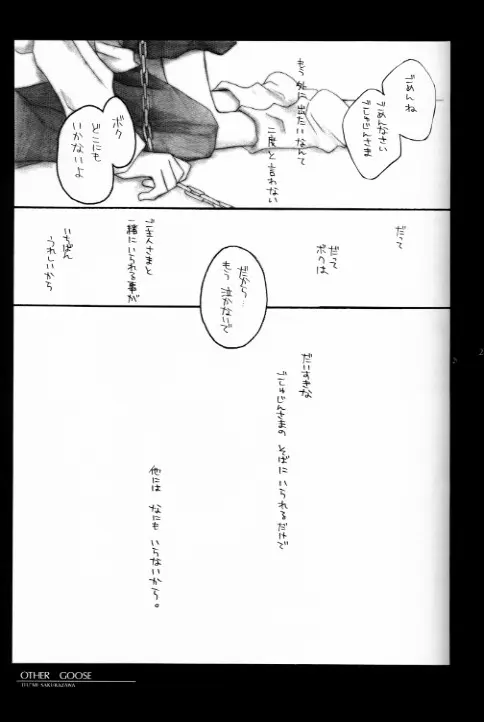 ごめんね
ごめんなさい
ごしゅじんさま
もう 外に 出たいなんて
二度と 言わない
ボク
どこにも
いかないよ
だって
だって
ボクは
ご主人さまと
一緒にいられる事が
いちばん
うれしいから
だから…
もう 泣かないで
だいすきな
ごしゅじんさまの そばに いられるだけで
他には なにも いらないから。
OTHER GOOSE
ITUME SAKURAZAWA